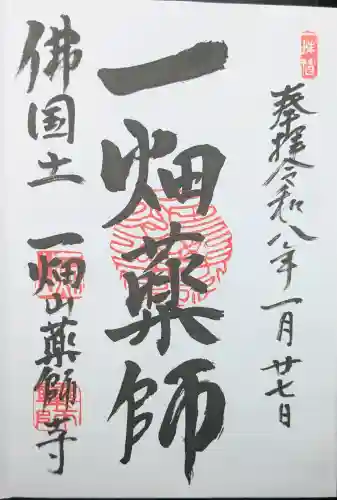 奉拝令和八年一月廿七日
一畑薬師
佛国土
一畑山薬師寺